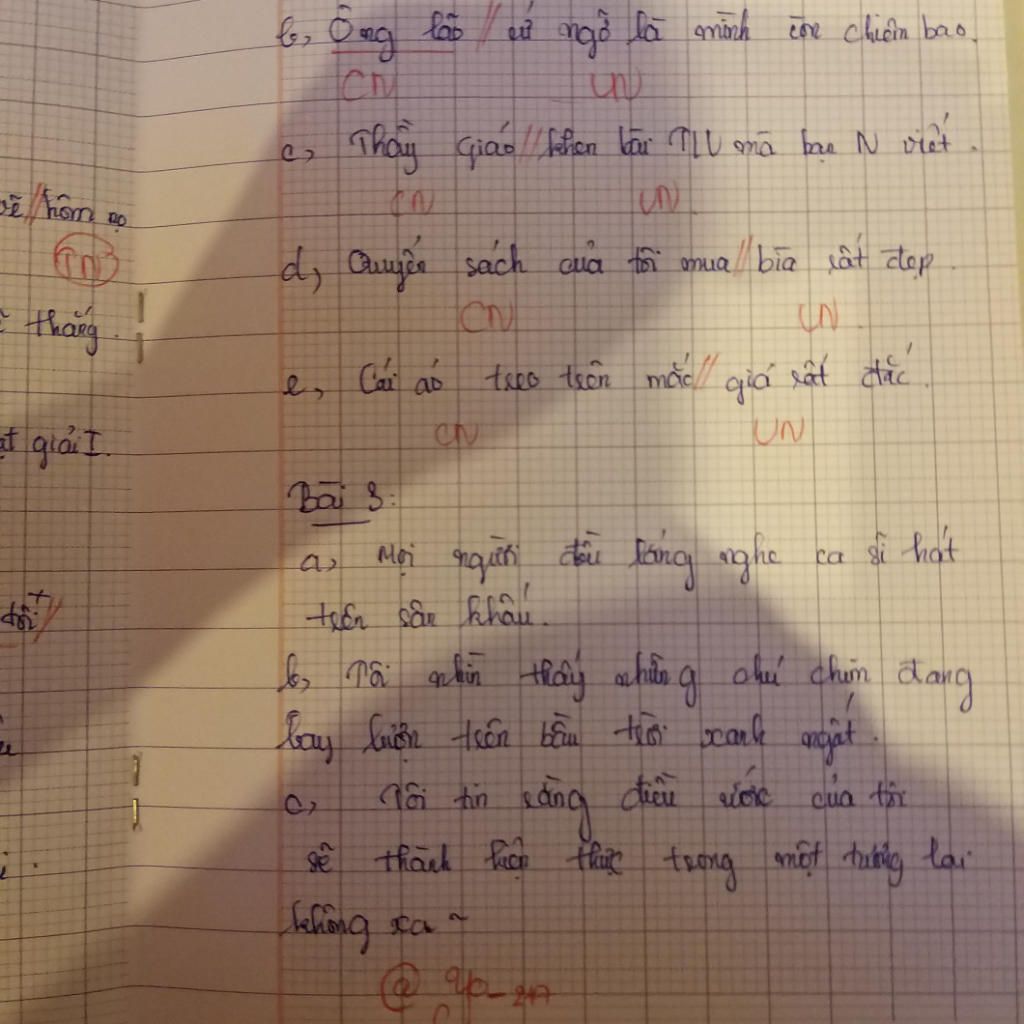 b, Ông lão // cứ ngỡ là mình còn chiêm bao.
CN VN
c, Thầy giáo // khen bài TLV mà bạn N viết.
CN VN
vẽ // hôm nọ
TN
d, Quyển sách của tôi mua // bìa rất đẹp.
CN VN
thắng.
e, Cái áo treo trên mắc // giá rất đắt.
CN VN
giải I.
Bài 3:
a, Mọi người đều lắng nghe ca sĩ hát
trên sân khấu.
b, Tôi nhìn thấy những chú chim đang
bay lượn trên bầu trời xanh ngắt.
c, Tôi tin rằng điều ước của tôi
sẽ thành hiện thực trong một tương lai
không xa ~